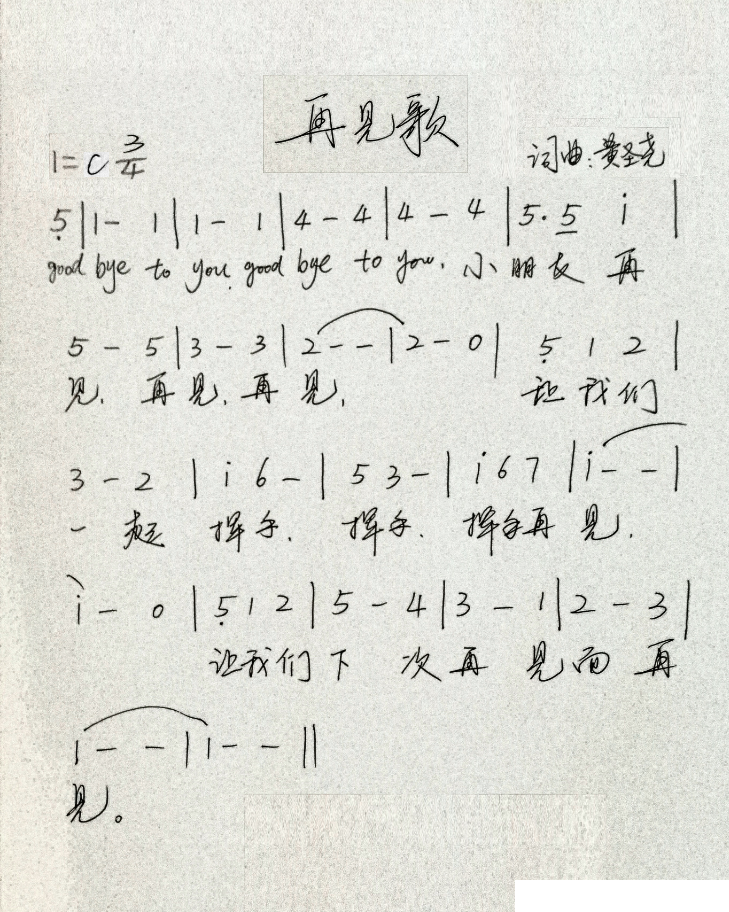 再见歌
1=C 3/4
词曲:黄圣尧
5̣|1- 1|1- 1|4-4|4-4|5·5̲ i|
good bye to you. good bye to you. 小朋友再
5-5|3-3|2--|2-0| 5̣ 1 2|
见.再见.再见. 让我们
3-2 |i 6-|5 3-|i 6 7|i--|
一起 挥手. 挥手. 挥手再见.
i-0|5̣ 1 2|5-4|3-1|2-3|
让我们下次再见面再
1--|1--||
见。